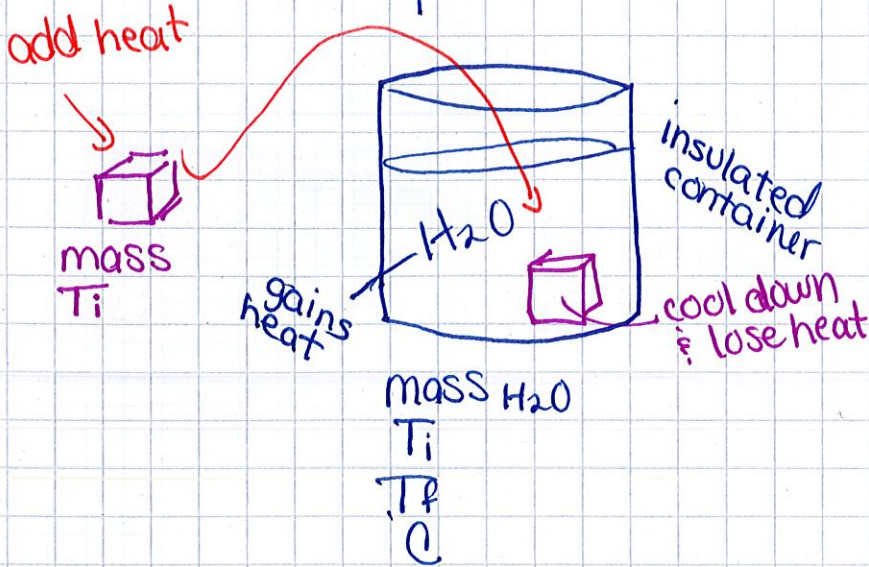 add heat
mass
Ti
H2O
gains
heat
insulated
container
cool down
& lose heat
mass H2O
Ti
Tf
C